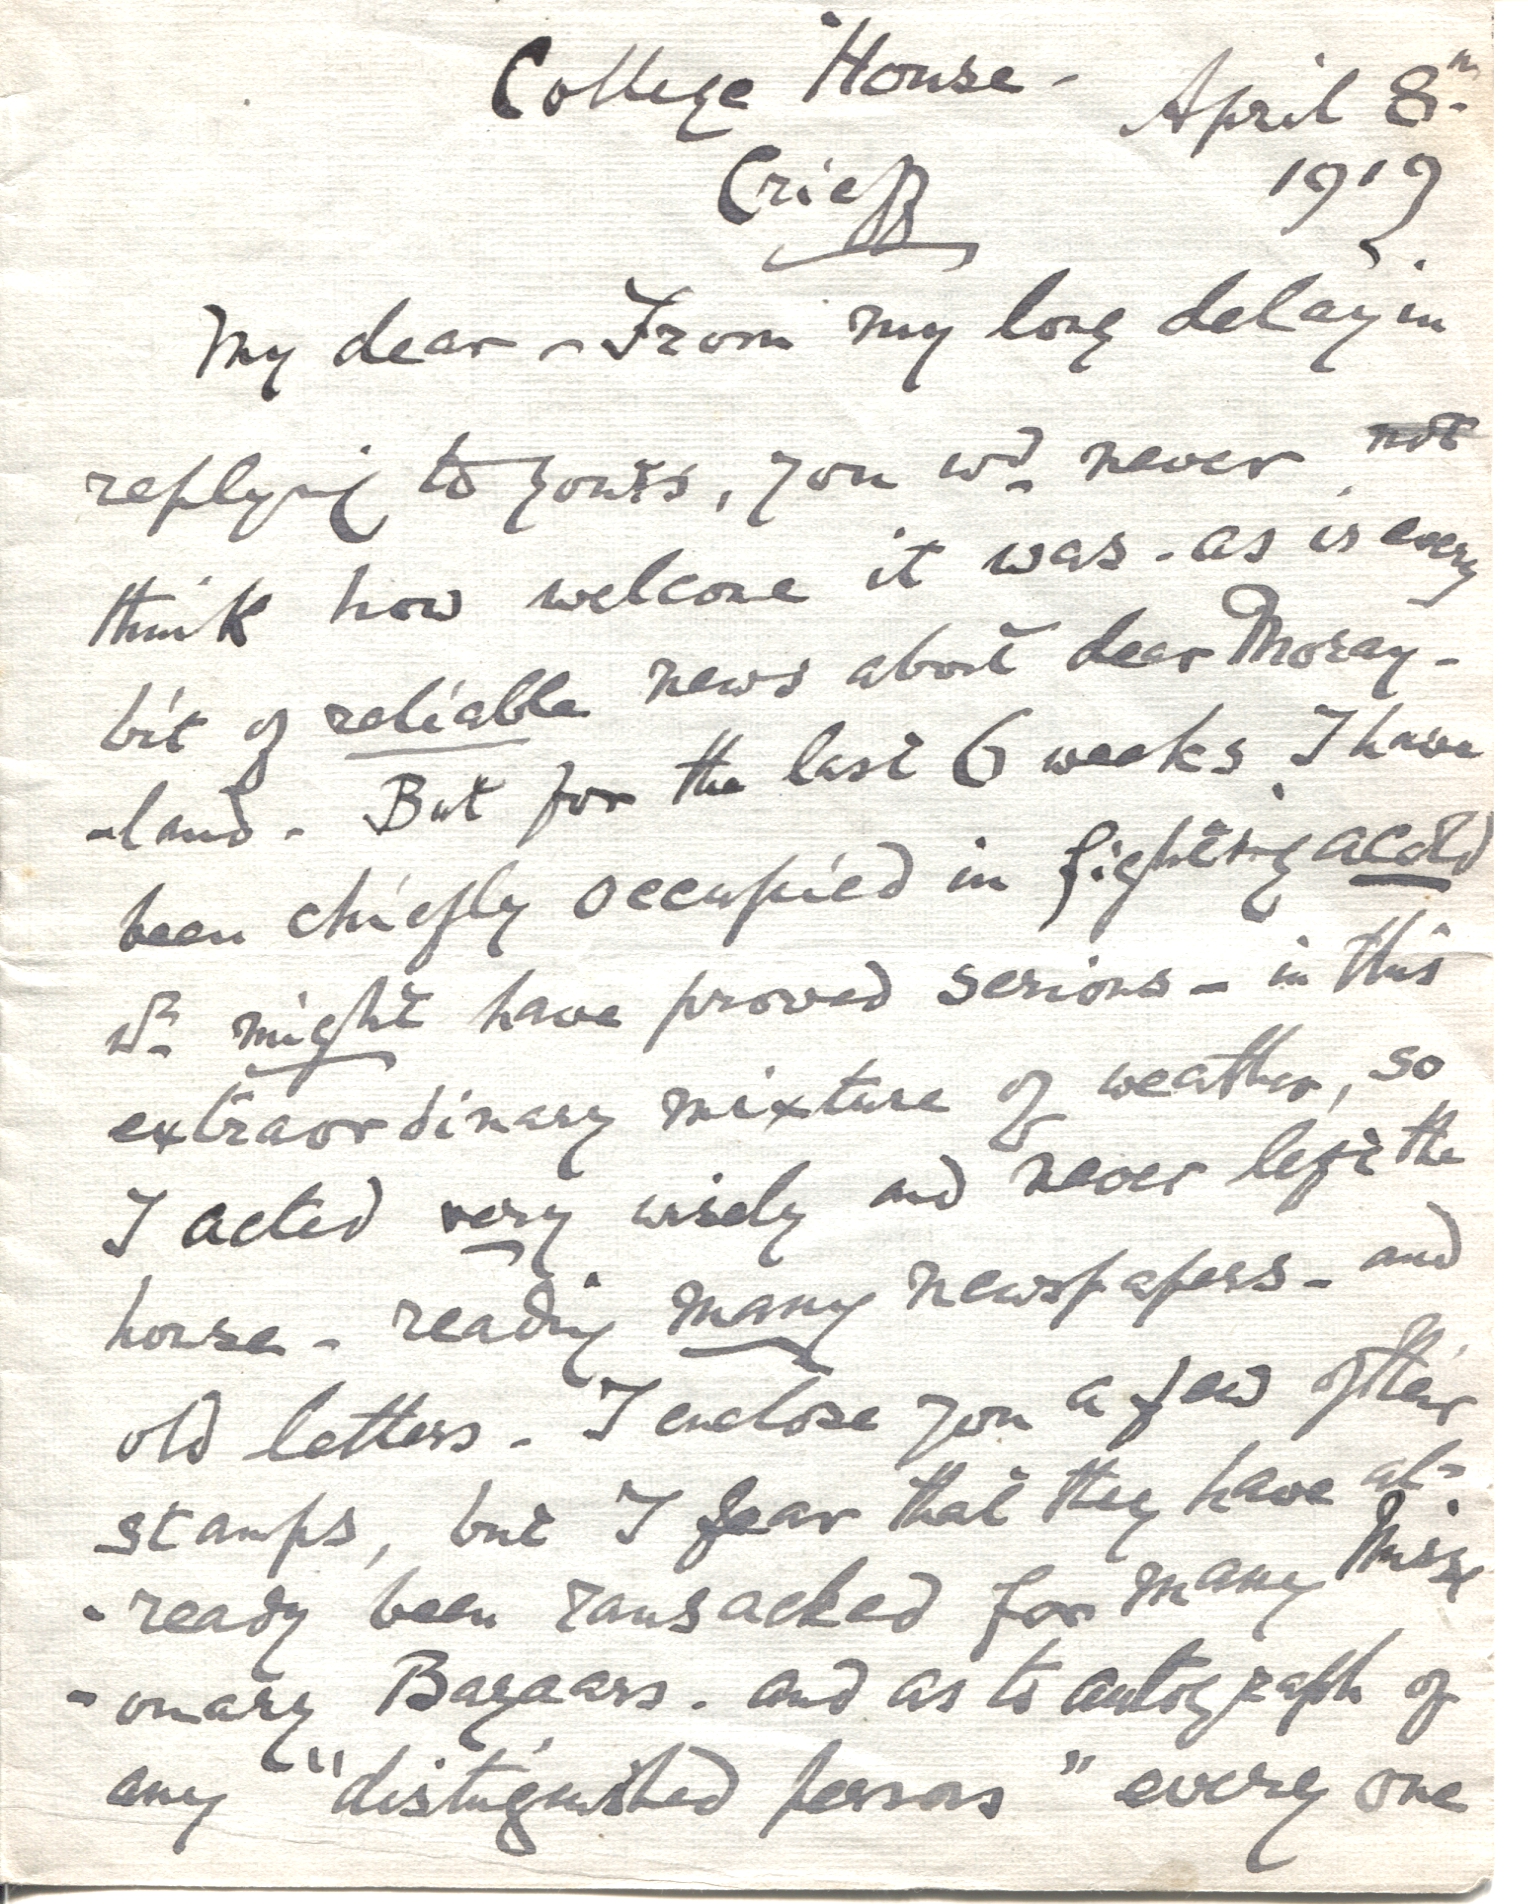 College House - April 8th
Crieff 1919
My dear - From my long delay in
replying to yours, you wd never not
think how welcome it was - as is every
bit of reliable news about dear Moray-
-land - But for the last 6 weeks I have
been chiefly occupied in fighting a cold
wh might have proved serious - in this
extraordinary mixture of weather, so
I acted very wisely and never left the
house - reading many newspapers - and
old letters - I enclose you a few of their
stamps, but I fear that they have al-
-ready been ransacked for many Missi
-onary Bazaars - and as to autograph of
any "distinguished persons" every one